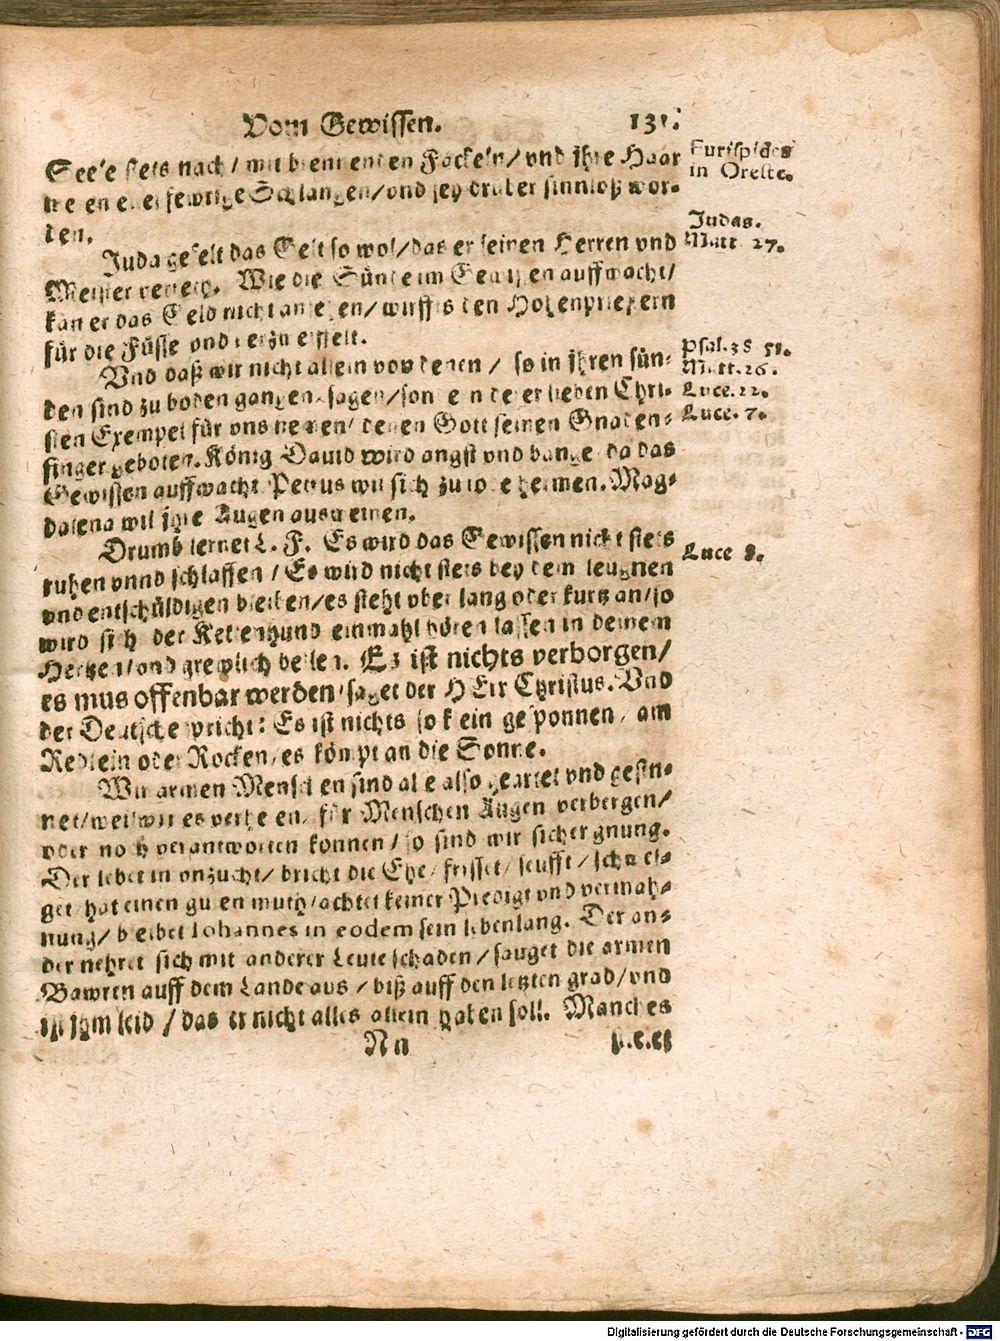 Vom Gewissen. 131.
Seele stets nach / mit brennenden Fackeln / vnd ihre Haar
Euripides
in Oreste.
weren eitel fewrige Schlangen / vnd sey drüber sinnloß wor-
den.
Judas.
Matt. 27.
Juda gefelt das Gelt so wol / das er seinen Herren vnd
Meister verreth. Wie die Sünde im Gewissen auffwacht /
kan er das Geld nicht ansehen / wirffts den Hohenpriestern
für die Füsse vnd verzweiffelt.
Vnd daß wir nicht allein von denen / so in ihren sün-
Psal. 38 51.
Matt. 26.
den sind zu boden gangen sagen / sondern der lieben Chri-
Luce. 22.
sten Exempel für vns nemen / denen Gott seinen Gnaden-
Luce. 7.
finger geboten. König Dauid wird angst vnd bange da das
Gewissen auffwacht. Petrus wil sich zu tode heinen. Mag-
dalena wil ihre Augen ausweinen.
Drumb lernet L. F. Es wird das Gewissen nicht stets
Luce 8.
ruhen vnnd schlaffen / Es wird nicht stets bey dem leugnen
vnd entschüldigen bleiben / es steht vber lang oder kurtz an / so
wird sich der Kettenhund einmahl hören lassen in deinem
Hertzen / vnd grewlich bellen. Es ist nichts verborgen /
es mus offenbar werden / saget der HErr Christus. Vnd
der Deutsche spricht: Es ist nichts so klein gesponnen / am
Redlein oder Rocken / es kömpt an die Sonne.
Wir armen Menschen sind alle also geartet vnd gesin-
net / weil wir es verheelen / für Menschen Augen verbergen /
oder noch verantworten können / so sind wir sicher gnung.
Der lebet in vnzucht / bricht die Ehe / frisset / seufft / schwel-
get / hat einen guten muth / achtet keiner Predigt vnd vermah-
nung / bleibet Iohannes in eodem sein lebenlang. Der an-
der nehret sich mit anderer Leute schaden / sauget die armen
Bawren auff dem Lande aus / biß auff den letzten grad / vnd
ist ihm leid / das er nicht alles allein haben soll. Manches
Nn